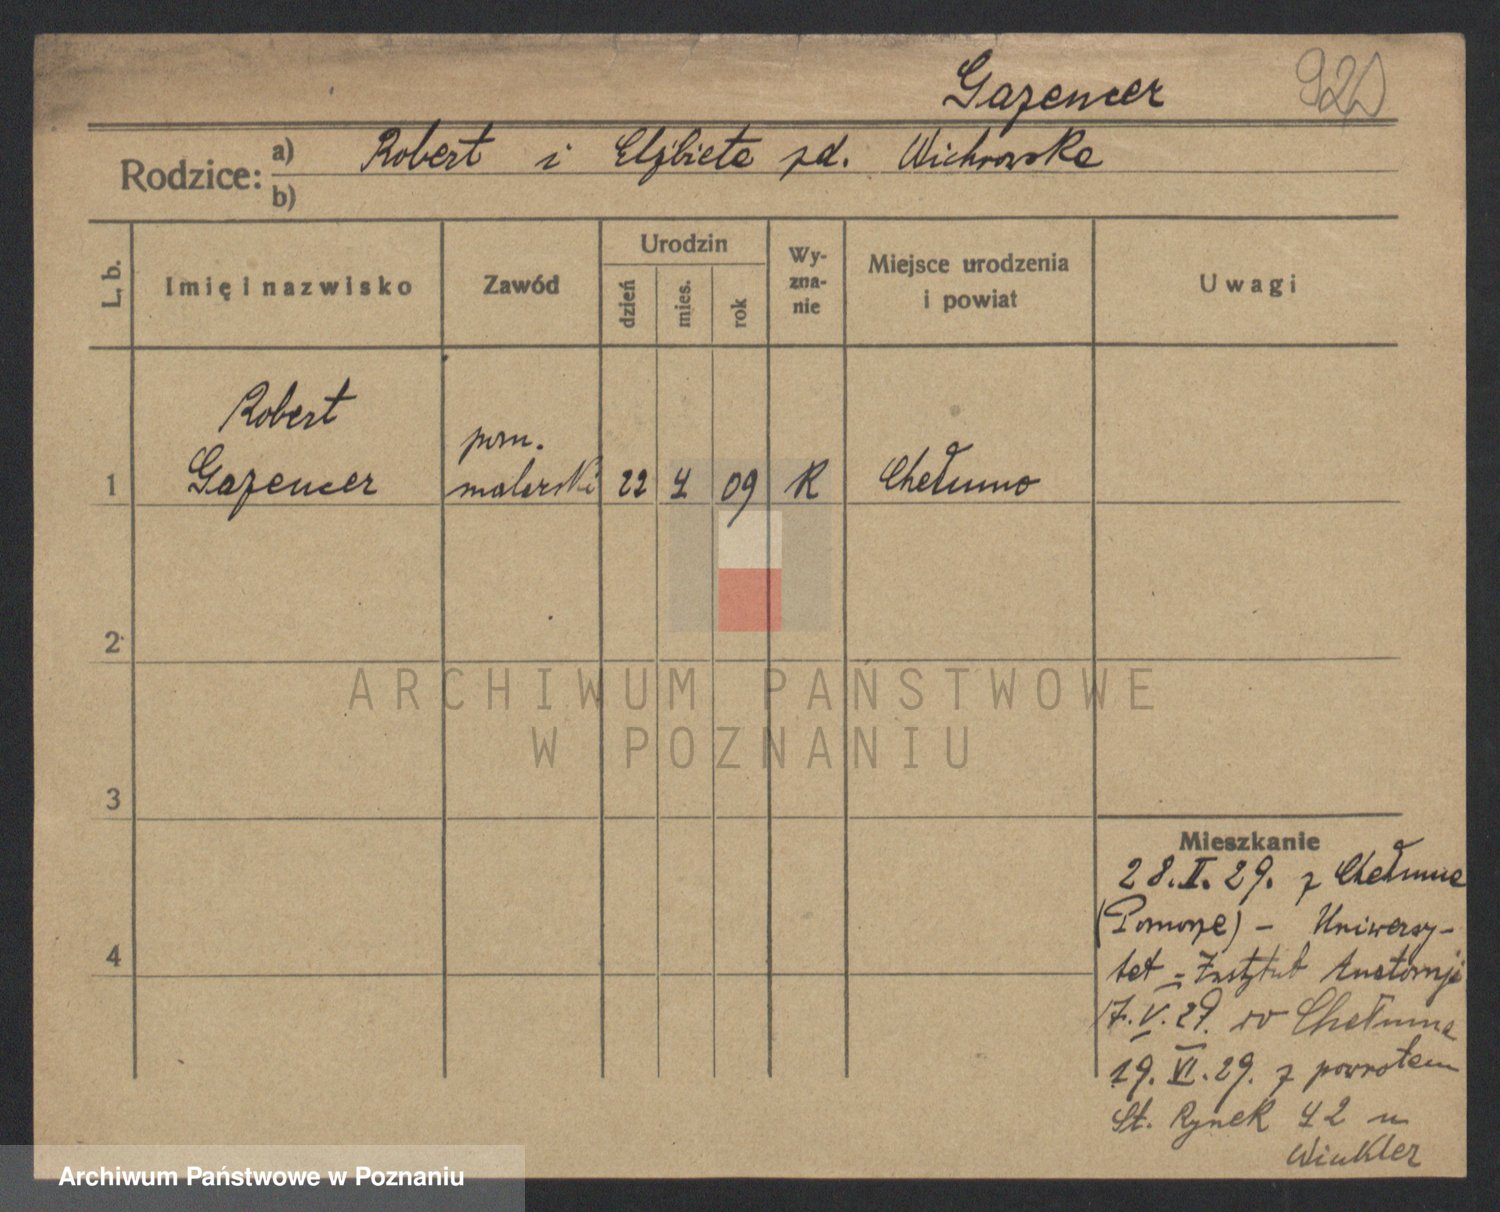 Gazencer
920
Rodzice: a) Robert i Elżbieta zd. Wichrowska
b)
L. b.
Imię i nazwisko
Zawód
Urodzin
dzień
mies.
rok
Wy-
zna-
nie
Miejsce urodzenia
i powiat
Uwagi
Robert
pom.
1 Gazencer malarski 22 4 09 R Chełmno
2
ARCHIWUM PAŃSTWOWE
W POZNANIU
3
Mieszkanie
28.II.29. z Chełmna
(Pomorze) - Uniwersy-
4
tet - Instytut Anatomji
17.V.29. do Chełmna
19.VI.29. z powrotem
St. Rynek 42 u
Winkler
Archiwum Państwowe w Poznaniu